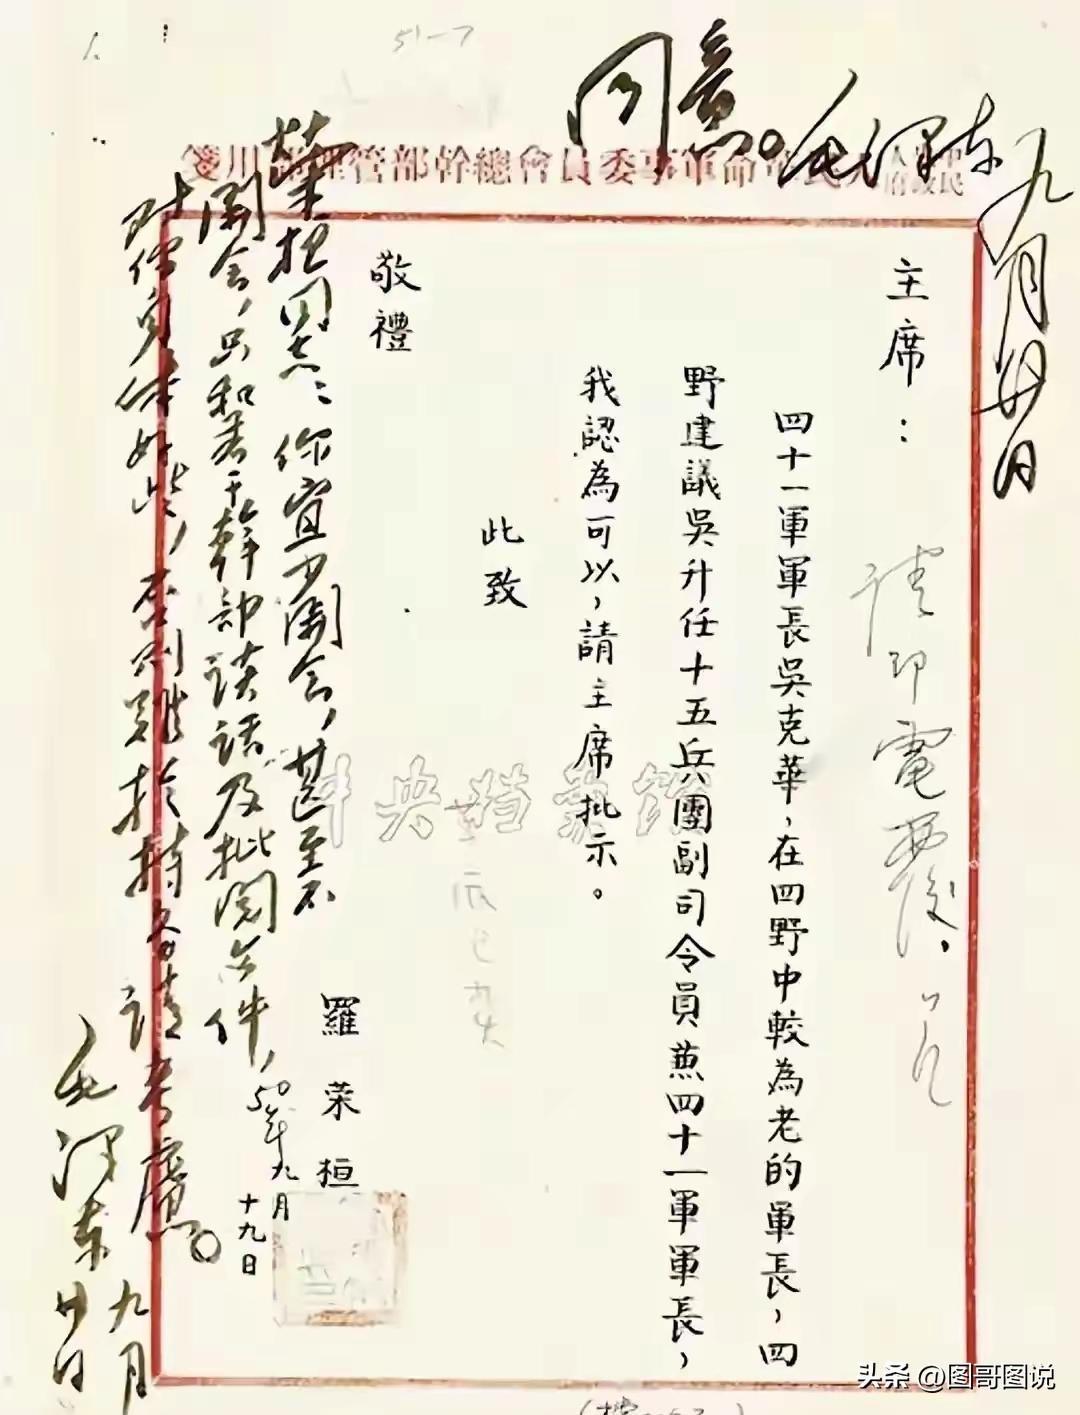 51-7
同意。毛泽东
九月廿日
中央人民政府人民革命軍事委員會總幹部管理部用箋
主席：
四十一軍軍長吳克華，在四野中較為老的軍長，四
野建議吳升任十五兵團副司令員兼四十一軍軍長，
我認為可以，請主席批示。
此致
敬禮
羅荣桓
50年九月
十九日
荣桓同志：你宜少開会，甚至不
開会，只和若干幹部谈话及批閱文件，
对你身体好些，否则难於持久，请考慮。
毛泽东
九月
廿日
中央档案馆
头条 @图哥图说